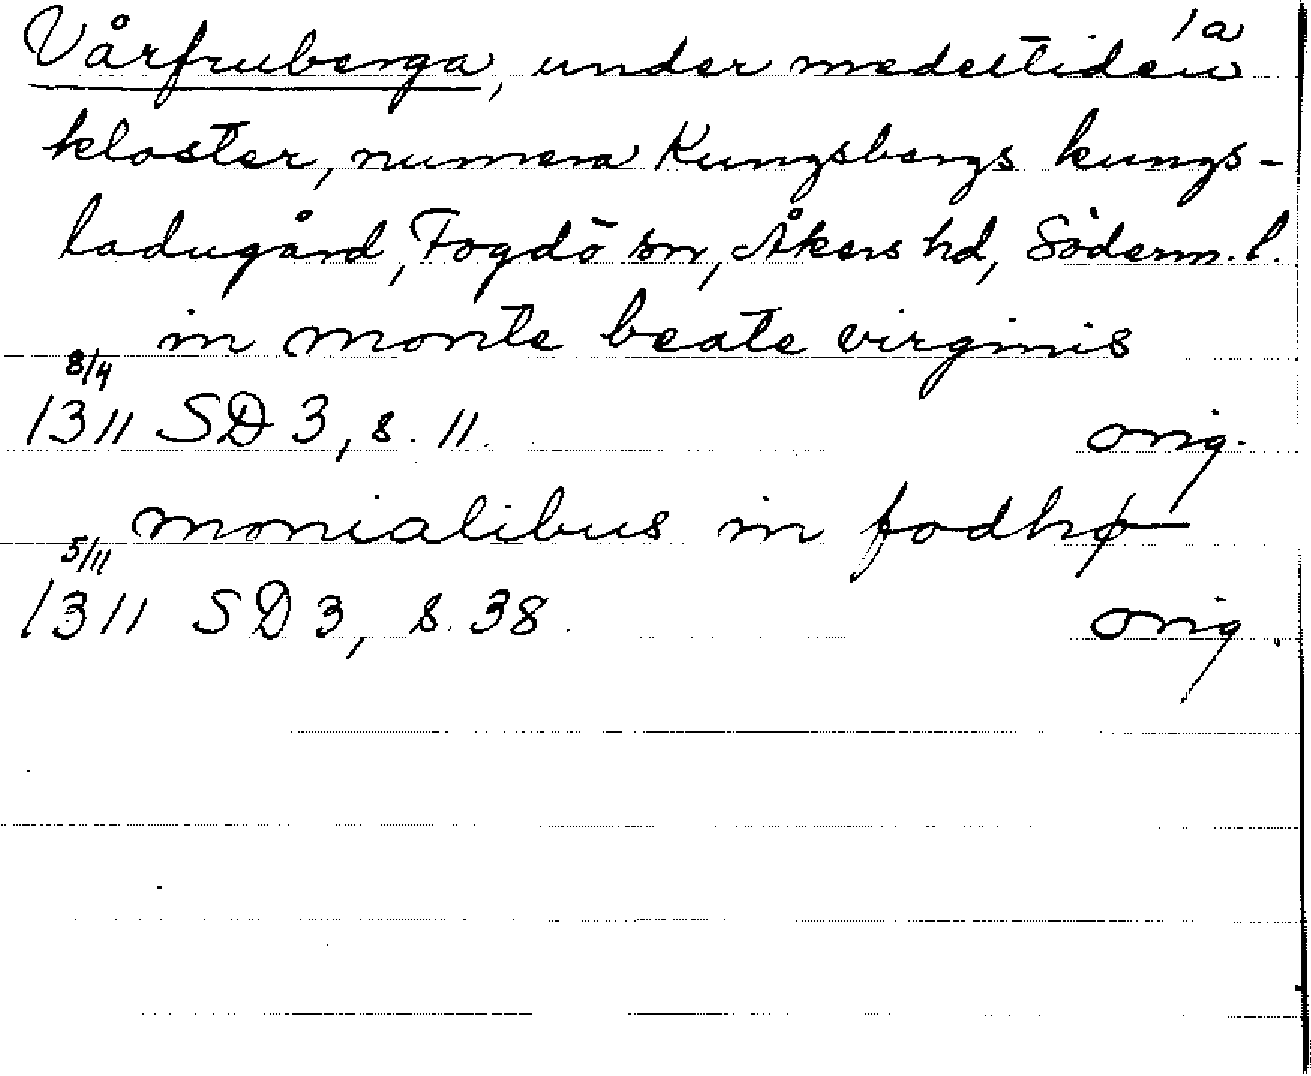 1a
Vårfruberga, under medeltiden
kloster, numera Kungsbergs kungs-
ladugård, Fogdö sn, Åkers hd, Söderm. l.
in monte beate virginis
8/4
1311 SD 3, s. 11. orig.
monialibus in fodhø
5/11
1311 SD 3, s. 38. orig.